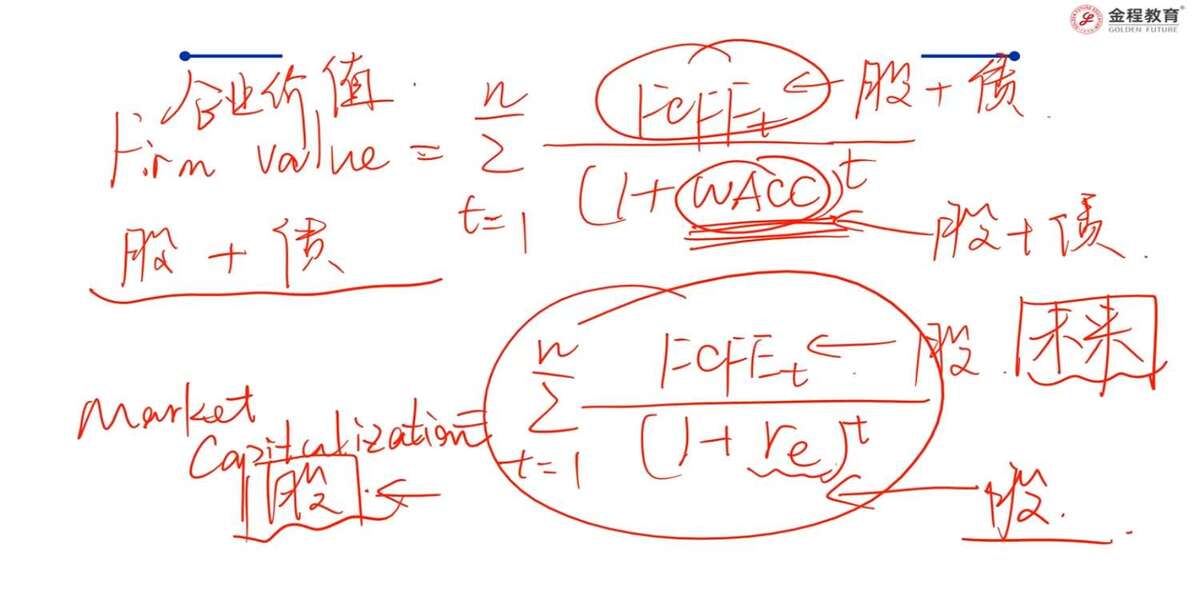 金程教育®
GOLDEN FUTURE
企业价值
Firm value = n Σ t=1 FCFFt / (1+WACC)^t ← 股+债
股+债
← 股+债
Market Capitalization = n Σ t=1 FCFEt / (1+re)^t ← 股 未来
股 ←
← 股